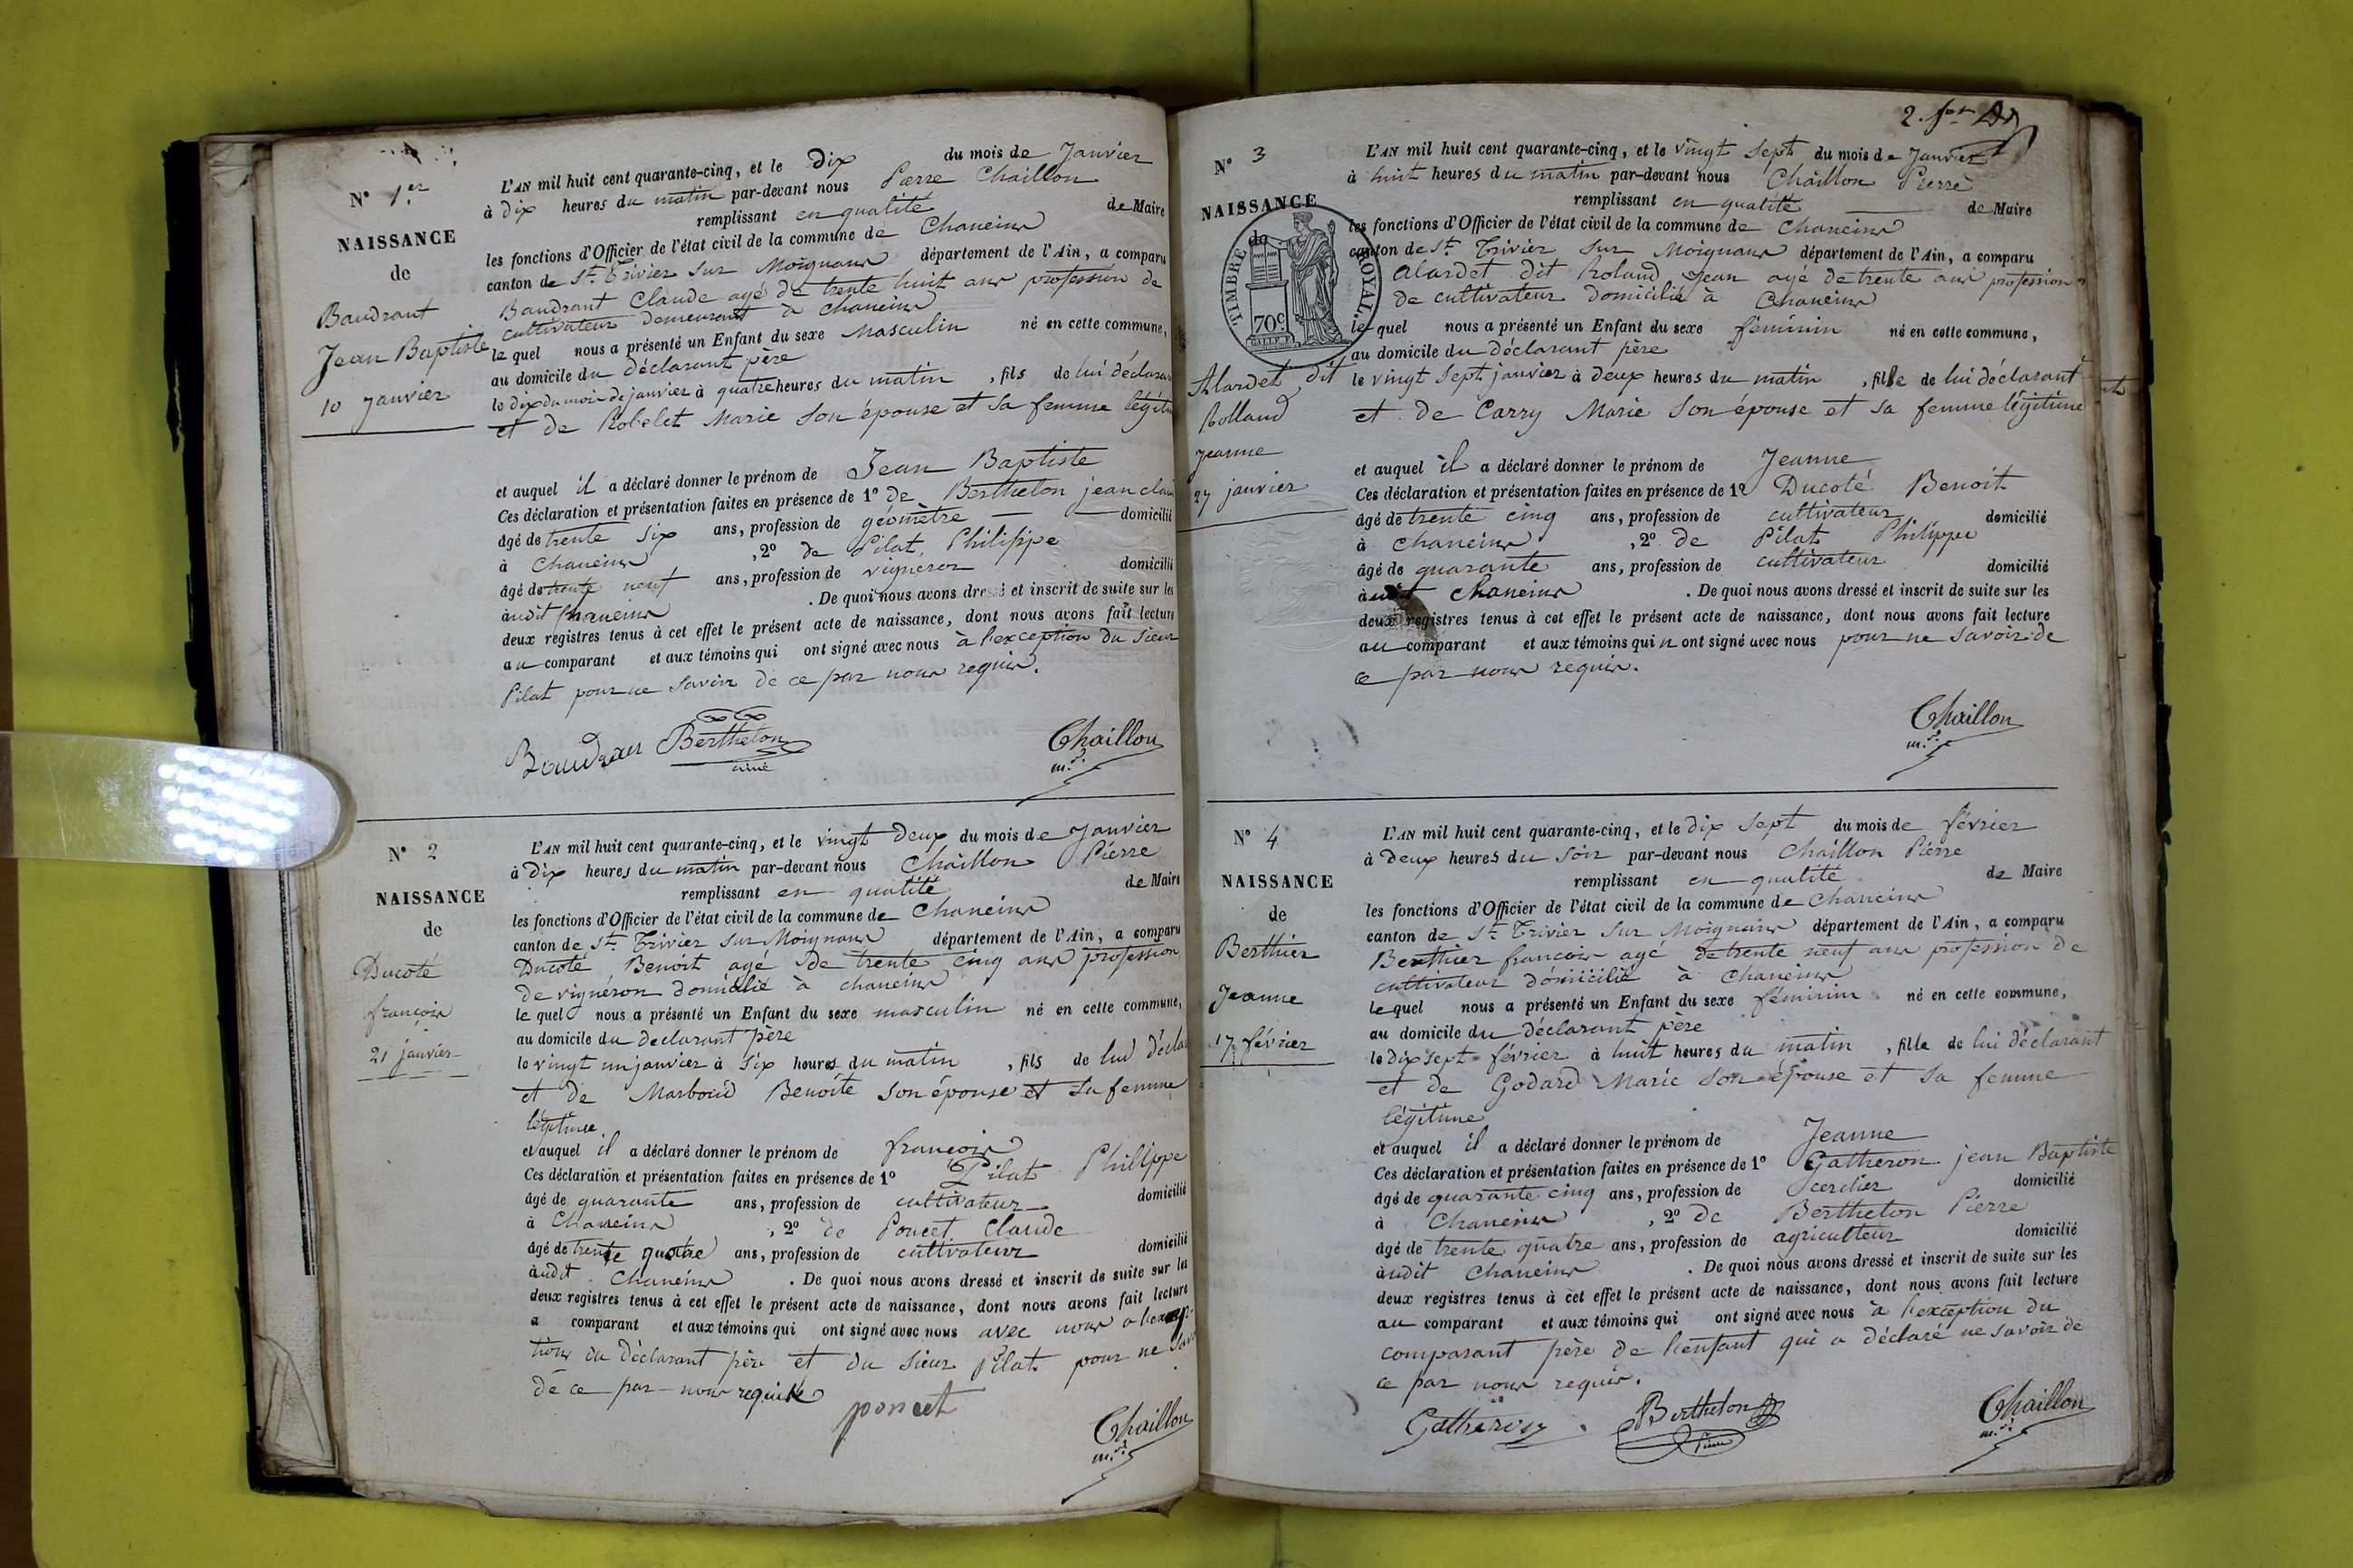 N° 1.er
NAISSANCE
de
Baudrant
Jean Baptiste
10 Janvier
L'AN mil huit cent quarante-cinq, et le Dix du mois de Janvier
à Dix heures du matin par-devant nous Pierre Chaillon
remplissant en qualité de Maire
les fonctions d'Officier de l'état civil de la commune de Chaneins
canton de St. Trivier sur Moignans département de l'Ain, a comparu
Baudrant Claude agé de trente huit ans profession de
cultivateur demeurant à Chaneins
le quel nous a présenté un Enfant du sexe Masculin né en cette commune,
au domicile du déclarant père
le dix du mois de janvier à quatre heures du matin, fils de lui déclarant
et de Robelet Marie son épouse et sa femme légiti
et auquel il a déclaré donner le prénom de Jean Baptiste
Ces déclaration et présentation faites en présence de 1° de Bertheton jean clau
âgé de trente six ans, profession de géomètre domicilié
à Chaneins, 2° de Pilat Philippe
âgé de trente neuf ans, profession de vigneron domicilié
àudit Chaneins. De quoi nous avons dressé et inscrit de suite sur les
deux registres tenus à cet effet le présent acte de naissance, dont nous avons fait lecture
au comparant et aux témoins qui ont signé avec nous à l'exception du sieur
Pilat pour ne savoir de ce par nous requis.
Baudran Bertheton
ainé
Chaillon
m.re
N° 2
NAISSANCE
de
Ducoté
françois
21 janvier
L'AN mil huit cent quarante-cinq, et le vingt Deux du mois de Janvier
à Dix heures du matin par-devant nous Chaillon Pierre
remplissant en qualité de Maire
les fonctions d'Officier de l'état civil de la commune de Chaneins
canton de St. Trivier sur Moignans département de l'Ain, a comparu
Ducoté Benoit agé de trente cinq ans profession
de vigneron domicilié à chaneins
le quel nous a présenté un Enfant du sexe masculin né en cette commune,
au domicile du déclarant père
le vingt un janvier à six heures du matin, fils de lui décla
et de Marboud Benoite son épouse et sa femme
légitime
et auquel il a déclaré donner le prénom de françois
Ces déclaration et présentation faites en présence de 1° Pilat Philippe
âgé de quarante ans, profession de cultivateur domicilié
à Chaneins, 2° de Poncet Claude
âgé de trente quatre ans, profession de cultivateur domicilié
àudit Chaneins. De quoi nous avons dressé et inscrit de suite sur les
deux registres tenus à cet effet le présent acte de naissance, dont nous avons fait lecture
a comparant et aux témoins qui ont signé avec nous avec nous a l'excep-
tion du déclarant père et du sieur Pilat pour ne savo
de ce par nous requis
poncet
Chaillon
m.re
2.
N° 3
NAISSANCE
de
TIMBRE ROYAL.
70c
Alardet dit
Rolland
Jeanne
27 janvier
L'AN mil huit cent quarante-cinq, et le vingt sept du mois de Janvier
à huit heures du matin par-devant nous Chaillon Pierre
remplissant en qualité de Maire
les fonctions d'Officier de l'état civil de la commune de Chaneins
canton de St. Trivier sur Moignans département de l'Ain, a comparu
Alardet dit Roland Jean agé de trente ans profession
de cultivateur domicilié à Chaneins
le quel nous a présenté un Enfant du sexe féminin né en cette commune,
au domicile du déclarant père
le vingt sept janvier à deux heures du matin, fille de lui déclarant
et de Carry Marie son épouse et sa femme légitime
et auquel il a déclaré donner le prénom de Jeanne
Ces déclaration et présentation faites en présence de 1° Ducoté Benoit
âgé de trente cinq ans, profession de cultivateur domicilié
à chaneins, 2° de Pilat Philippe
âgé de quarante ans, profession de cultivateur domicilié
àudit Chaneins. De quoi nous avons dressé et inscrit de suite sur les
deux registres tenus à cet effet le présent acte de naissance, dont nous avons fait lecture
au comparant et aux témoins qui n ont signé avec nous pour ne savoir de
ce par nous requis.
Chaillon
m.re
N° 4
NAISSANCE
de
Berthier
Jeanne
17 février
L'AN mil huit cent quarante-cinq, et le dix sept du mois de février
à deux heures du soir par-devant nous Chaillon Pierre
remplissant en qualité de Maire
les fonctions d'Officier de l'état civil de la commune de Chaneins
canton de St. Trivier sur Moignans département de l'Ain, a comparu
Berthier françois agé de trente neuf ans profession de
cultivateur domicilié à Chaneins
le quel nous a présenté un Enfant du sexe féminin né en cette commune,
au domicile du déclarant père
le dix sept février à huit heures du matin, fille de lui déclarant
et de Godard Marie son épouse et sa femme
légitime
et auquel il a déclaré donner le prénom de Jeanne
Ces déclaration et présentation faites en présence de 1° Gatheron jean Baptiste
âgé de quarante cinq ans, profession de domicilié
à Chaneins, 2° de Bertheton Pierre
âgé de trente quatre ans, profession de agriculteur domicilié
àudit Chaneins. De quoi nous avons dressé et inscrit de suite sur les
deux registres tenus à cet effet le présent acte de naissance, dont nous avons fait lecture
au comparant et aux témoins qui ont signé avec nous à l'exception du
comparant père de l'enfant qui a déclaré ne savoir de
ce par nous requis.
Gatheron Bertheton
Chaillon
m.re